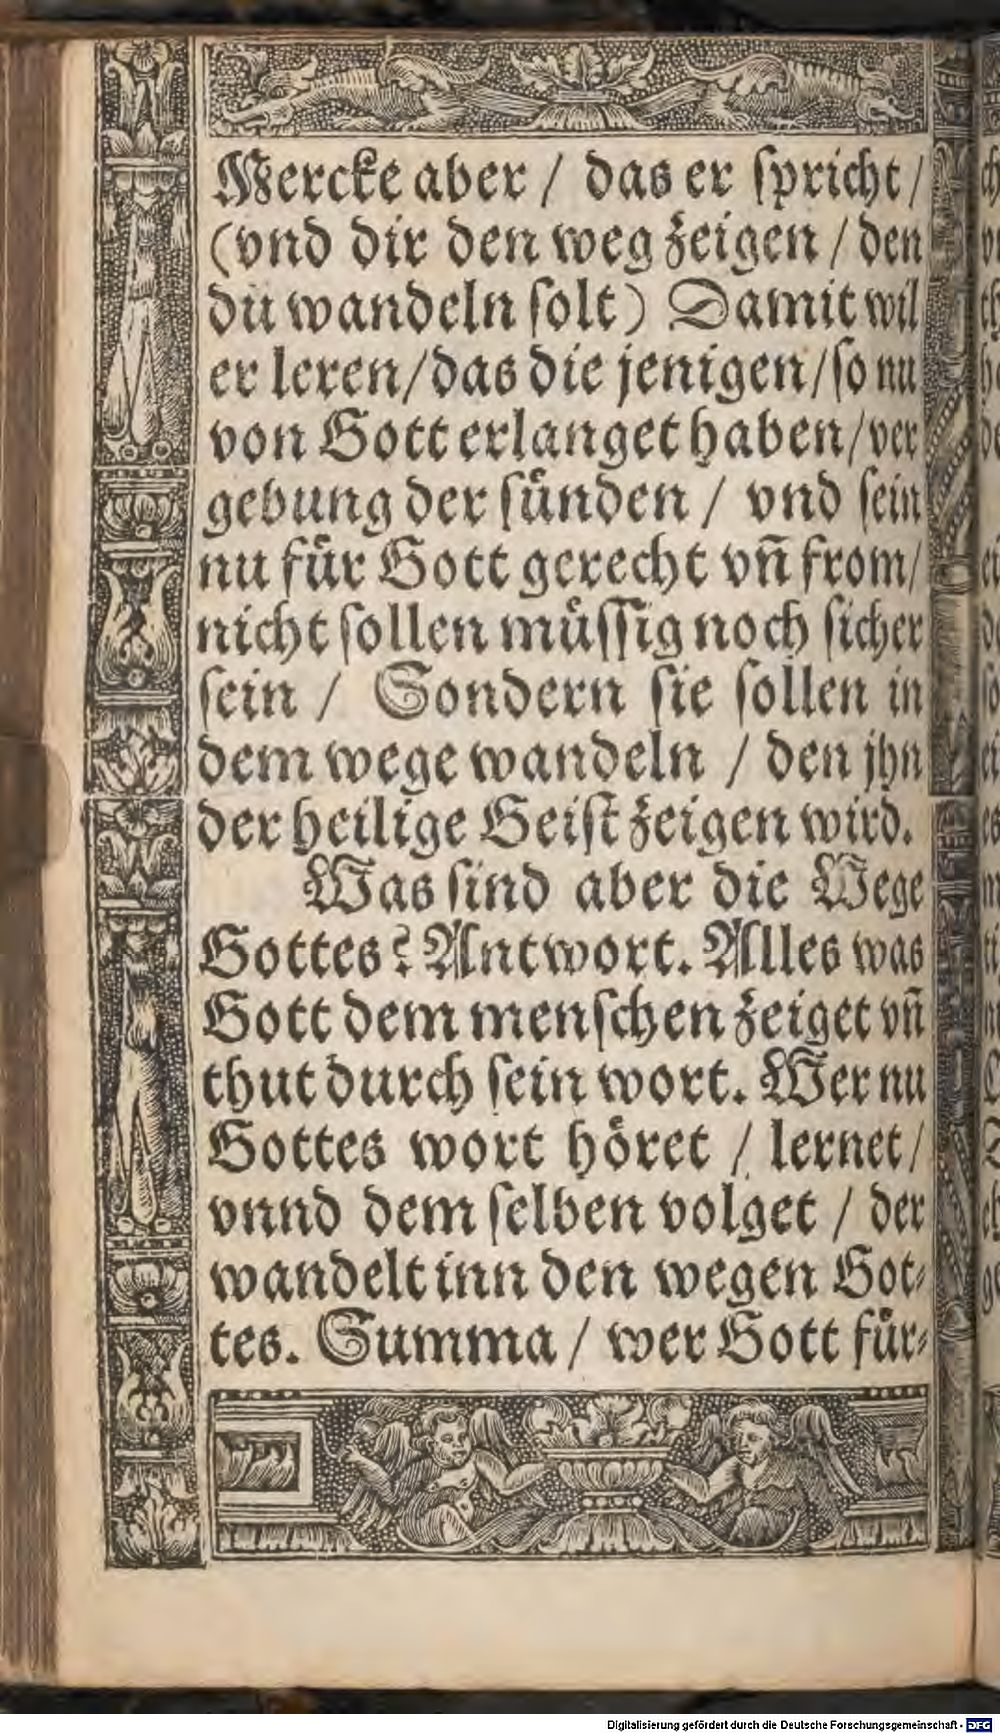 Wercke aber / das er ſpricht /
(vnd dir den weg zeigen / den
du wandeln ſolt) Damit wil
er leren / das die jenigen / ſo nu
von Gott erlanget haben / ver
gebung der ſuͤnden / vnd ſein
nu fuͤr Gott gerecht vn̄ from /
nicht ſollen muͤſſig noch ſicher
ſein / Sondern ſie ſollen in
dem wege wandeln / den jhn
der heilige Geiſt zeigen wird.
Was ſind aber die Wege
Gottes? Antwort. Alles was
Gott dem menſchen zeiget vn̄
thut durch ſein wort. Wer nu
Gottes wort hoͤret / lernet /
vnnd dem ſelben volget / der
wandelt inn den wegen Got⸗
tes. Summa / wer Gott fuͤr⸗
Digitalisierung gefördert durch die Deutsche Forschungsgemeinschaft - DFG